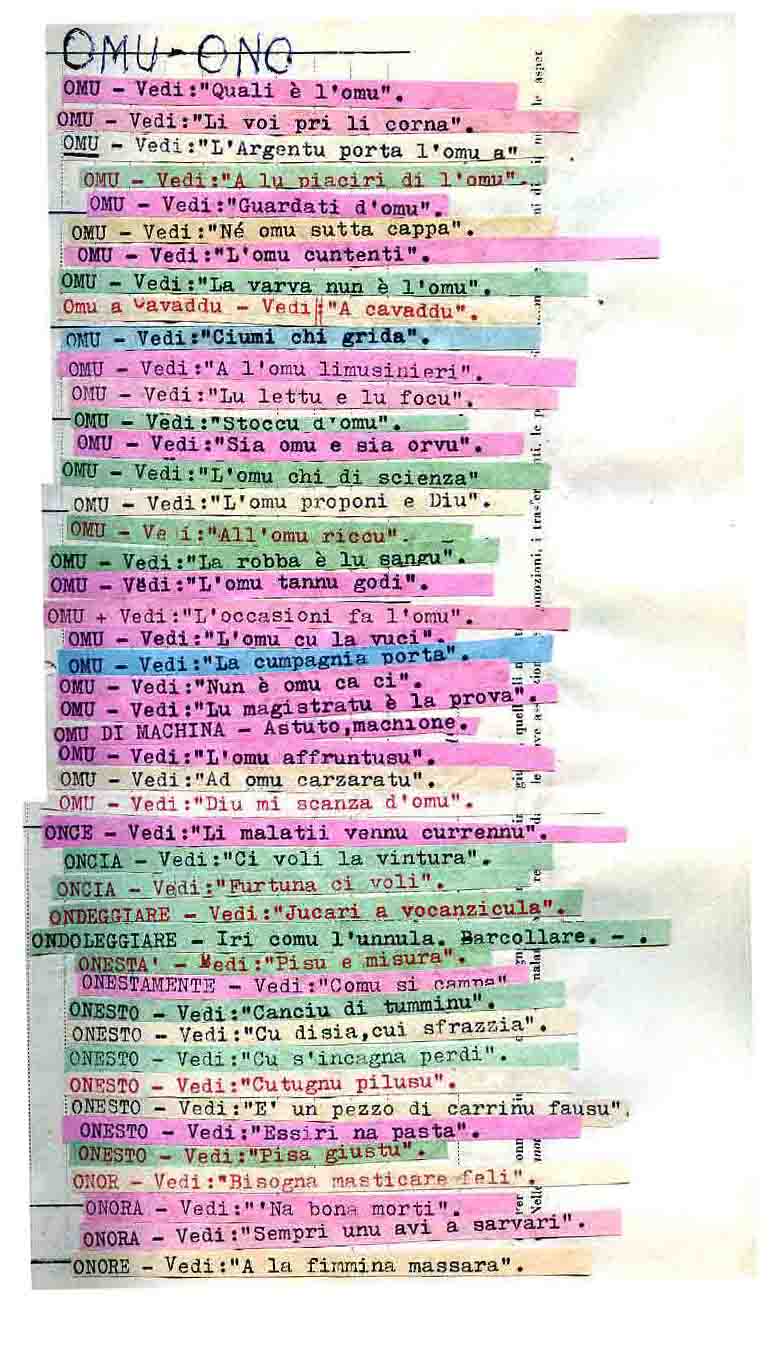 OMU - ONO
OMU - Vedi:"Quali è l'omu".
OMU - Vedi:"Li voi pri li corna".
OMU - Vedi:"L'Argentu porta l'omu a"
OMU - Vedi:"A lu piaciri di l'omu".
OMU - Vedi:"Guardati d'omu".
OMU - Vedi:"Né omu sutta cappa".
OMU - Vedi:"L'omu cuntenti".
OMU - Vedi:"La varva nun è l'omu".
Omu a Cavaddu - Vedi:"A cavaddu".
OMU - Vedi:"Ciumi chi grida".
OMU - Vedi:"A l'omu limusinieri".
OMU - Vedi:"Lu lettu e lu focu".
OMU - Vedi:"Stoccu d'omu".
OMU - Vedi:"Sia omu e sia orvu".
OMU - Vedi:"L'omu chi di scienza"
OMU - Vedi:"L'omu proponi e Diu".
OMU - Vedi:"All'omu riccu".
OMU - Vedi:"La robba è lu sangu".
OMU - Vedi:"L'omu tannu godi".
OMU + Vedi:"L'occasioni fa l'omu".
OMU - Vedi:"L'omu cu la vuci".
OMU - Vedi:"La cumpagnia porta".
OMU - Vedi:"Nun è omu ca ci".
OMU - Vedi:"Lu magistratu è la prova".
OMU DI MACHINA - Astuto,machione.
OMU - Vedi:"L'omu affruntusu".
OMU - Vedi:"Ad omu carzaratu".
OMU - Vedi:"Diu mi scanza d'omu".
ONCE - Vedi:"Li malatii vennu currennu".
ONCIA - Vedi:"Ci voli la vintura".
ONCIA - Vedi:"Furtuna ci voli".
ONDEGGIARE - Vedi:"Jucari a vocanzicula".
ONDOLEGGIARE - Iri comu l'unnula. Barcollare. - .
ONESTA' - Vedi:"Pisu e misura".
ONESTAMENTE - Vedi:"Comu si campa"
ONESTO - Vedi:"Canciu di tumminu".
ONESTO - Vedi:"Cu disia,cui sfrazzia".
ONESTO - Vedi:"Cu s'incagna perdi".
ONESTO - Vedi:"Cutugnu pilusu".
ONESTO - Vedi:"E' un pezzo di carrinu fausu".
ONESTO - Vedi:"Essiri na pasta".
ONESTO - Vedi:"Pisa giustu".
ONOR - Vedi:"Bisogna masticare feli".
ONORA - Vedi:"'Na bona morti".
ONORA - Vedi:"Sempri unu avi a sarvari".
ONORE - Vedi:"A la fimmina massara".